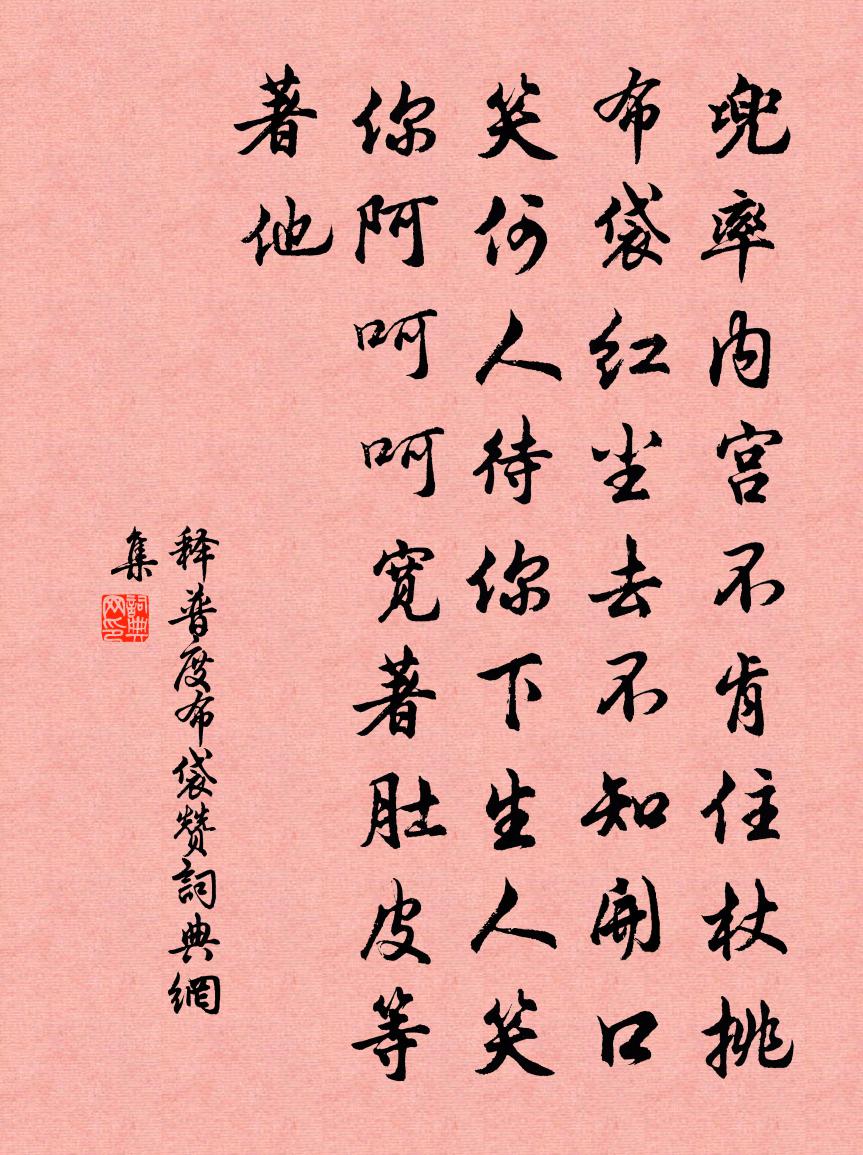 兜率内宫不肯住杖挑
布袋红尘去不知開口
笑何人待你下生人笑
你阿呵呵宽著肚皮等
著他
释普度布袋赞詞典網
集
詞典
网印